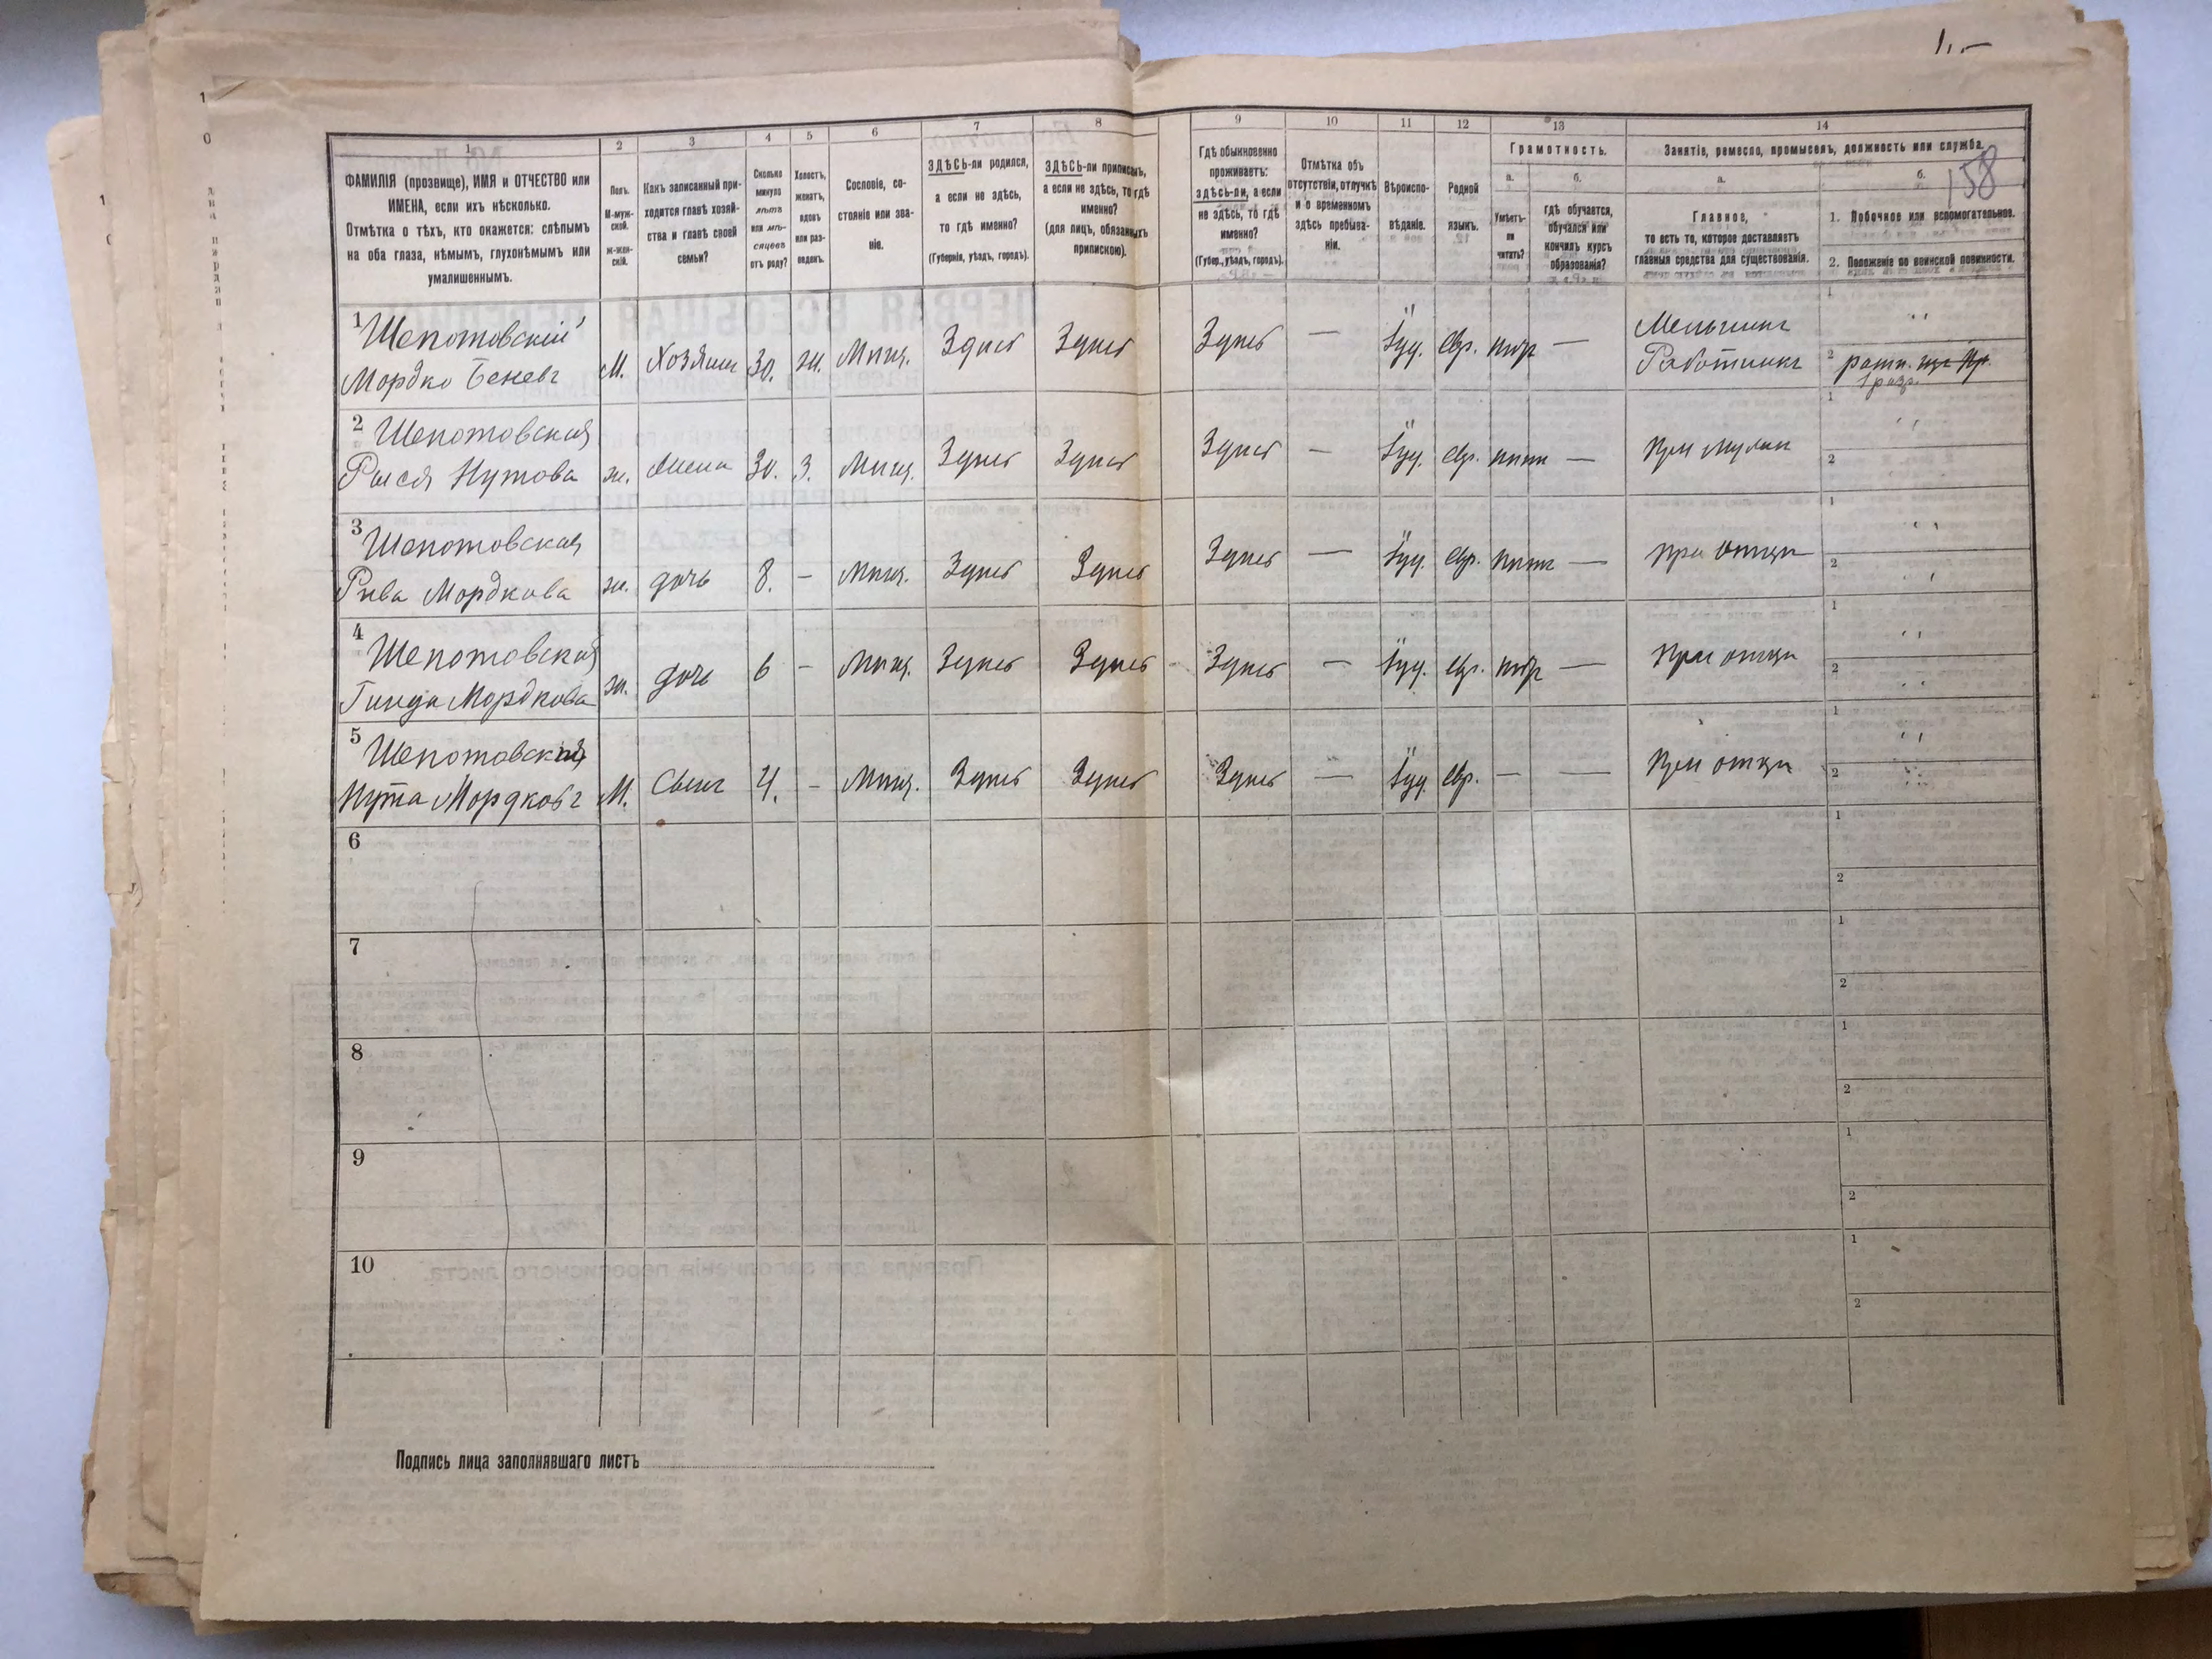 1.–
158
1
ФАМИЛІЯ (прозвище), ИМЯ и ОТЧЕСТВО или
ИМЕНА, если ихъ нѣсколько.
Отмѣтка о тѣхъ, кто окажется: слѣпымъ
на оба глаза, нѣмымъ, глухонѣмымъ или
умалишеннымъ.
2
Полъ.
М-муж-
ской.
Ж-жен-
скій.
3
Какъ записанный при-
ходится главѣ хозяй-
ства и главѣ своей
семьи?
4
Сколько
минуло
лѣтъ
или мѣ-
сяцевъ
отъ роду?
5
Холостъ,
женатъ,
вдовъ
или раз-
веденъ.
6
Сословіе, со-
стояніе или зва-
ніе.
7
ЗДѢСЬ-ли родился,
а если не здѣсь,
то гдѣ именно?
(Губернія, уѣздъ, городъ).
8
ЗДѢСЬ-ли приписанъ,
а если не здѣсь, то гдѣ
именно?
(для лицъ, обязанныхъ
припискою).
9
Гдѣ обыкновенно
проживаетъ:
здѣсь-ли, а если
не здѣсь, то гдѣ
именно?
(Губер., уѣздъ, городъ).
10
Отмѣтка объ
отсутствіи, отлучкѣ
и о временномъ
здѣсь пребыва-
ніи.
11
Вѣроиспо-
вѣданіе.
12
Родной
языкъ.
13
Грамотность.
а.
Умѣетъ-
ли
читать?
б.
гдѣ обучается,
обучался или
кончилъ курсъ
образованія?
14
Занятіе, ремесло, промыселъ, должность или служба.
а.
Главное,
то есть то, которое доставляетъ
главныя средства для существованія.
б.
1. Побочное или вспомогательное.
2. Положеніе по воинской повинности.
1 Шепотовскій
Мордко Беневъ
М. Хозяинъ 30. ж. Мѣщ. Здѣсь Здѣсь Здѣсь — Іуд. Евр. —
Мельникъ
Работникъ
1
2 ратн.
1 разр.
2 Шепотовская
Рыся Нутова
ж. жена 30. З. Мѣщ. Здѣсь Здѣсь Здѣсь — Іуд. Евр. нѣтъ — При мужѣ
1
2
3 Шепотовская
Рива Мордкова
ж. дочь 8. – Мѣщ. Здѣсь Здѣсь Здѣсь — Іуд. Евр. нѣтъ — При отцѣ
1
2
4 Шепотовская
Гинда Мордкова
ж. дочь 6 – Мѣщ. Здѣсь Здѣсь Здѣсь — Іуд. Евр. — При отцѣ
1
2
5 Шепотовскій
Нута Мордковъ
М. Сынъ 4. – Мѣщ. Здѣсь Здѣсь Здѣсь — Іуд. Евр. — — При отцѣ
1
2
6
1
2
7
1
2
8
1
2
9
1
2
10
1
2
Подпись лица заполнявшаго листъ